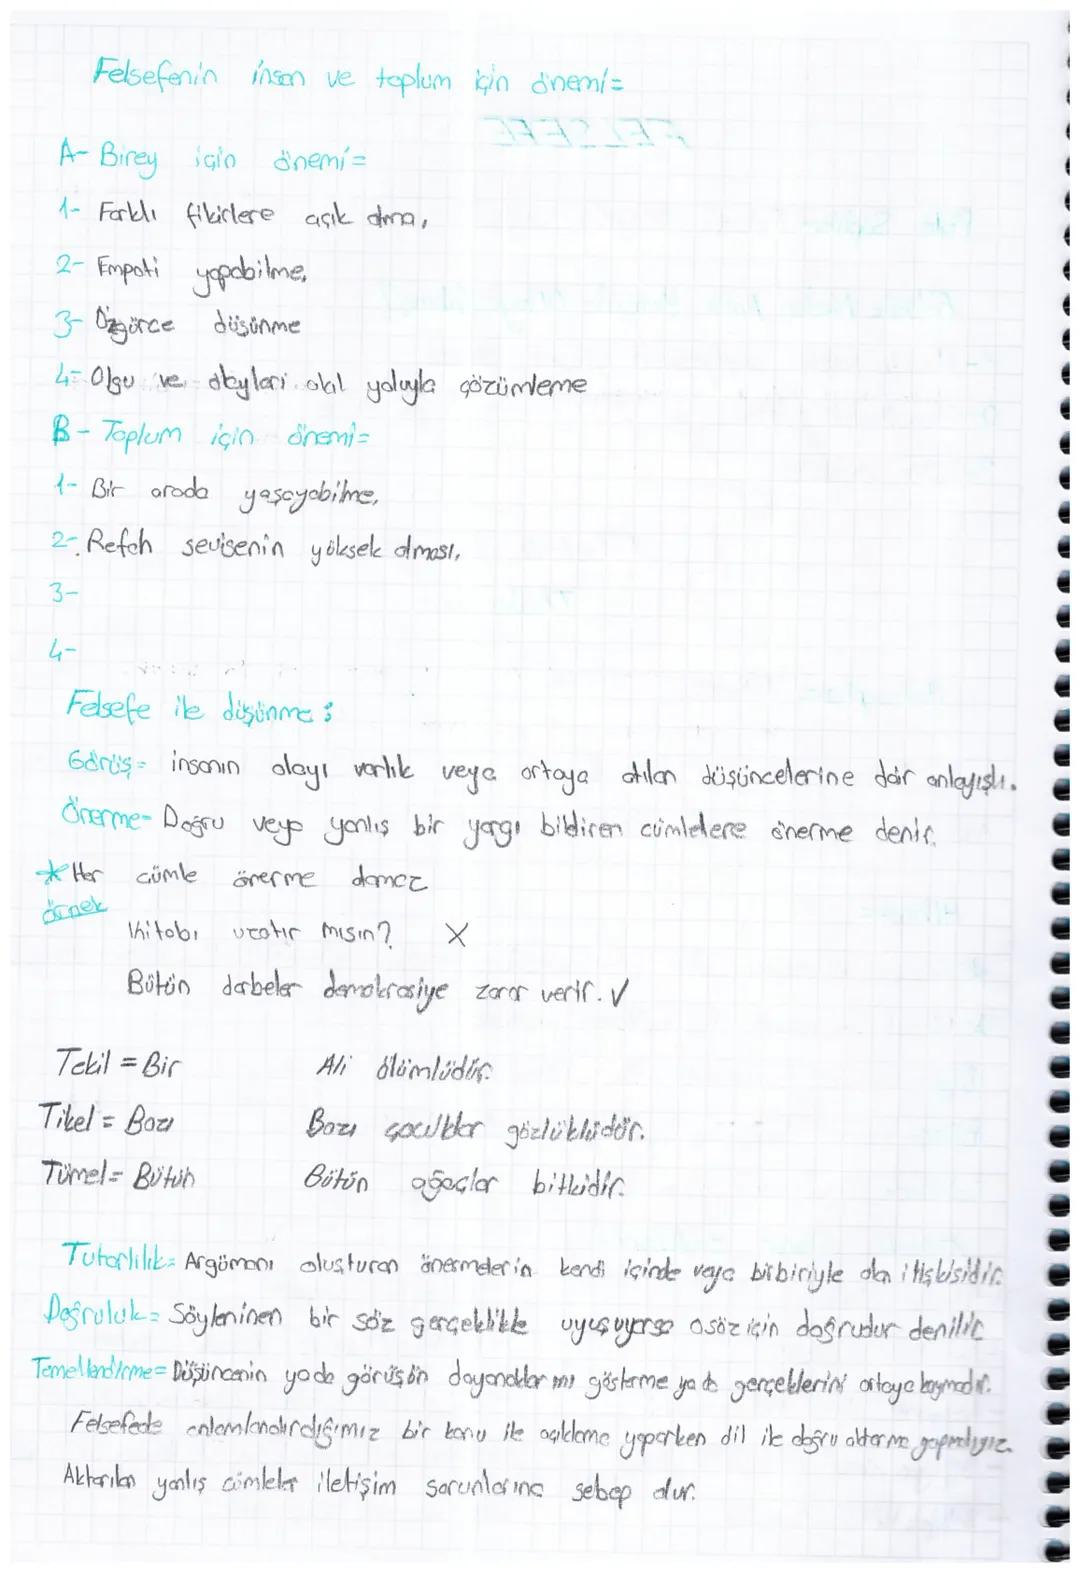 Felsefenin insan ve toplum için önemi=
FELSEFE
A- Birey için önemi=
1- Farklı fikirlere açık olma,
2- Empati yapabilme,
3- Özgürce düşünme
4- Olgu ve olayları akıl yoluyla çözümleme
B- Toplum için önemi=
1- Bir arada yaşayabilme,
2- Refah sevisenin yüksek olması,
3-
4-
Felsefe ile düşünme:
Görüş= insanın olayı varlık veya ortaya atılan düşüncelerine dair anlayıştı.
Önerme- Doğru veya yanlış bir yargı bildiren cümlelere önerme denir.
* Her cümle önerme olamaz
örnek
Kitabı uzatır mısın? X
Bütün darbeler demokrasiye zarar verir. √
Tekil = Bir Ali ölümlüdür.
Tikel = Bazı Bazı çocuklar gözlüklüdür.
Tümel= Bütün Bütün ağaçlar bitkidir.
Tutarlılık= Argümanı oluşturan önermelerin kendi içinde veya birbiriyle olan ilişkisidir.
Doğruluk= Söyleninen bir söz gerçeklikle uyuşuyorsa o söz için doğrudur denilir
Temellendirme= Düşüncenin ya da görüşün dayanaklarını gösterme ya da gerçeklerini ortaya koymadır.
Felsefede anlamlandırdığımız bir konu ile açıklama yaparken dil ile doğru aktarma yapmalıyız.
Aktarılan yanlış cümleler iletişim sorunlarına sebep olur.